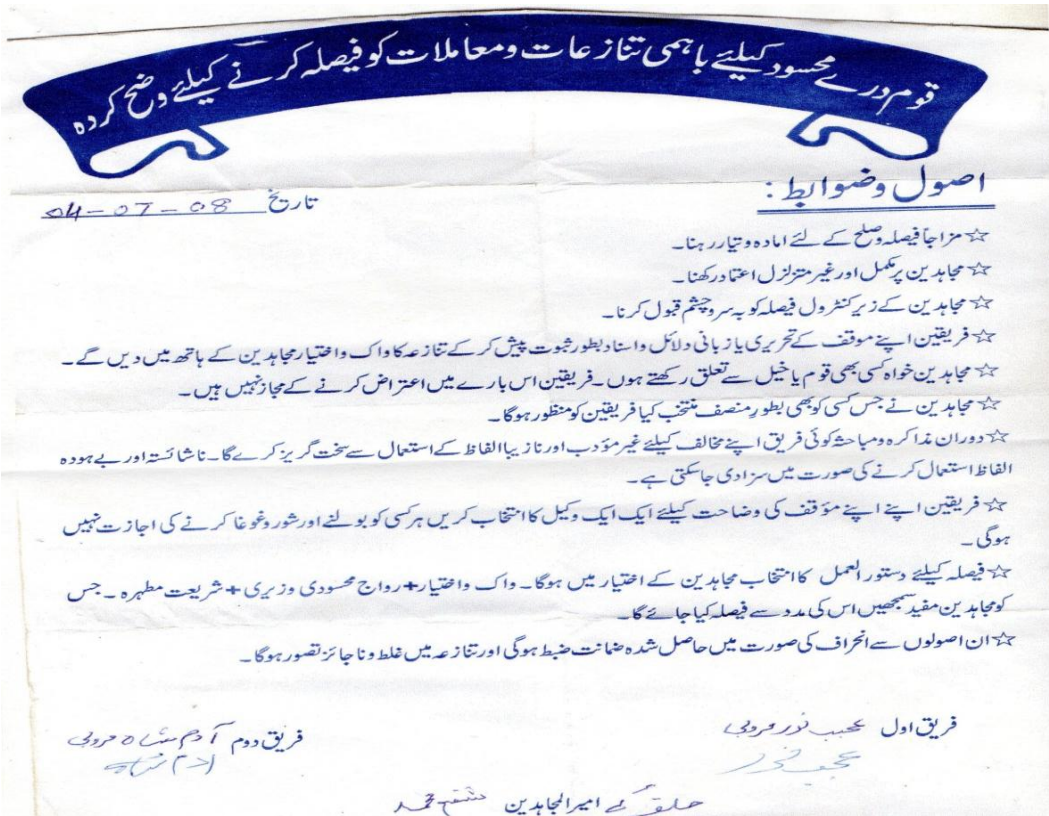 قوم دورے محسود کیلئے باہمی تنازعات و معاملات کو فیصلہ کرنے کیلئے وضح کردہ
اصول و ضوابط:
تاریخ 04-07-08
☆ مزاجاً فیصلہ وصلح کے لئے امادہ وتیار رہنا۔
☆ مجاہدین پر مکمل اور غیر متزلزل اعتماد رکھنا۔
☆ مجاہدین کے زیر کنٹرول فیصلہ کو بہ سروچشم قبول کرنا۔
☆ فریقین اپنے موقف کے تحریری یا زبانی دلائل واسناد بطور ثبوت پیش کر کے تنازعہ کا واک واختیار مجاہدین کے ہاتھ میں دیں گے۔
☆ مجاہدین خواہ کسی بھی قوم یا خیل سے تعلق رکھتے ہوں۔ فریقین اس بارے میں اعتراض کرنے کے مجاز نہیں ہیں۔
☆ مجاہدین نے جس کسی کو بھی بطور منصف منتخب کیا فریقین کو منظور ہوگا۔
☆ دوران مذاکرہ ومباحثہ کوئی فریق اپنے مخالف کیلئے غیر مؤدب اور نازیبا الفاظ کے استعمال سے سخت گریز کرے گا۔ ناشائستہ اور بے ہودہ
الفاظ استعمال کرنے کی صورت میں سزا دی جاسکتی ہے۔
☆ فریقین اپنے اپنے مؤقف کی وضاحت کیلئے ایک ایک وکیل کا انتخاب کریں ہر کسی کو بولنے اور شور وغوغا کرنے کی اجازت نہیں
ہوگی۔
☆ فیصلہ کیلئے دستور العمل کا انتخاب مجاہدین کے اختیار میں ہوگا۔ واک واختیار + رواج محسودی وزیری + شریعت مطہرہ۔ جس
کو مجاہدین مفید سمجھیں اس کی مدد سے فیصلہ کیا جائے گا۔
☆ ان اصولوں سے انحراف کی صورت میں حاصل شدہ ضمانت ضبط ہوگی اور تنازعہ میں غلط وناجائز تصور ہوگا۔
فریق اول عجیب نور
فریق دوم آدم شاہ
عجیب نور
آدم شاہ
حلقہ کے امیر المجاہدین